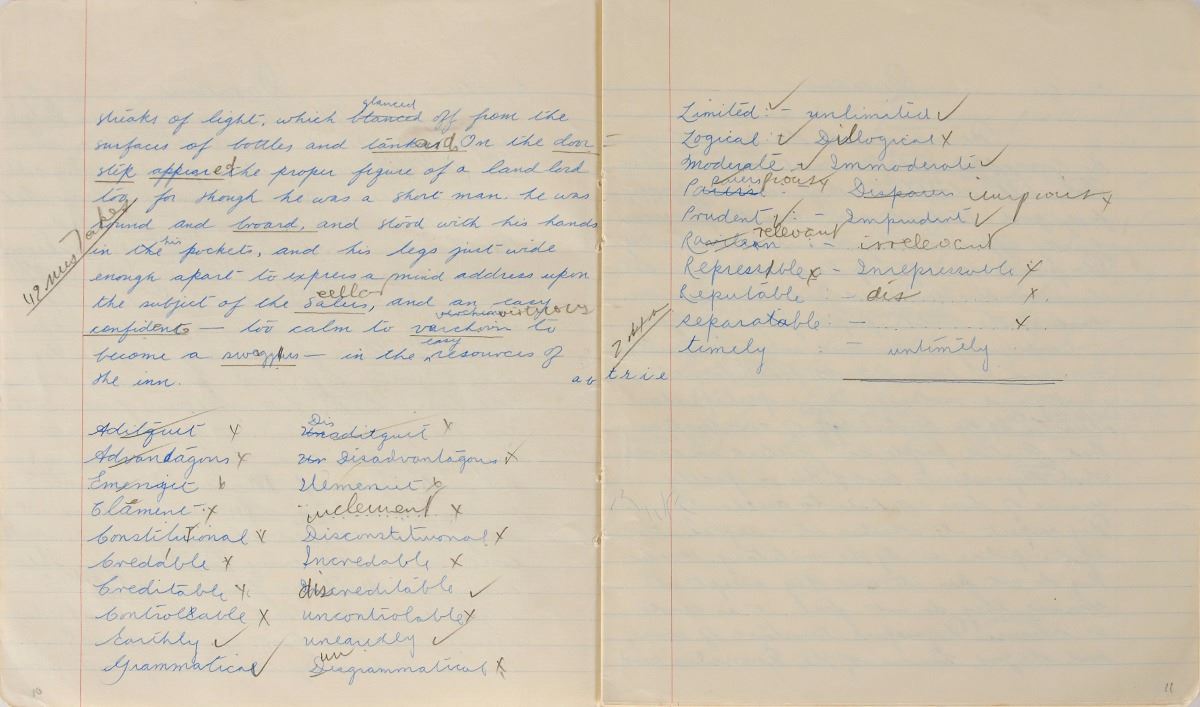 streaks of light, which glanced off from the
surfaces of bottles and tankard. On the door
step appeared the proper figure of a land lord
too for though he was a short man. he was
round and broard, and stood with his hands
in the his pockets, and his legs just wide
enough apart to express a mind address upon
the subject of the cellar, and an easy
confidents — too calm to virtuous to
become a swaggers — in the easy resources of
the inn.
49 mistakes
Aditquit x Disaditquit x
Advantagons x Un Disadvantagons x
Emenigit x Unemenict x
Clement x inclement x
Constitutional x Disconstituonal x
Credable x Incredable x
Creditable x discreditable ✓
Controleable x uncontrolable x
Earthly ✓ uneardly ✓
Grammatical ✓ un Disgrammatical x
10
Limited ✓ :- unlimited ✓
Logical ✓ Dislogical x
Moderate ✓ Immoderate ✓
Disparers x
Prudent ✓ :- Imprudent ✓
relevant :- irrelevant
Repressible x - Inrepressoble x
Reputable :- dis x
separatable - x
timely : - untimely
a b t r i e
11